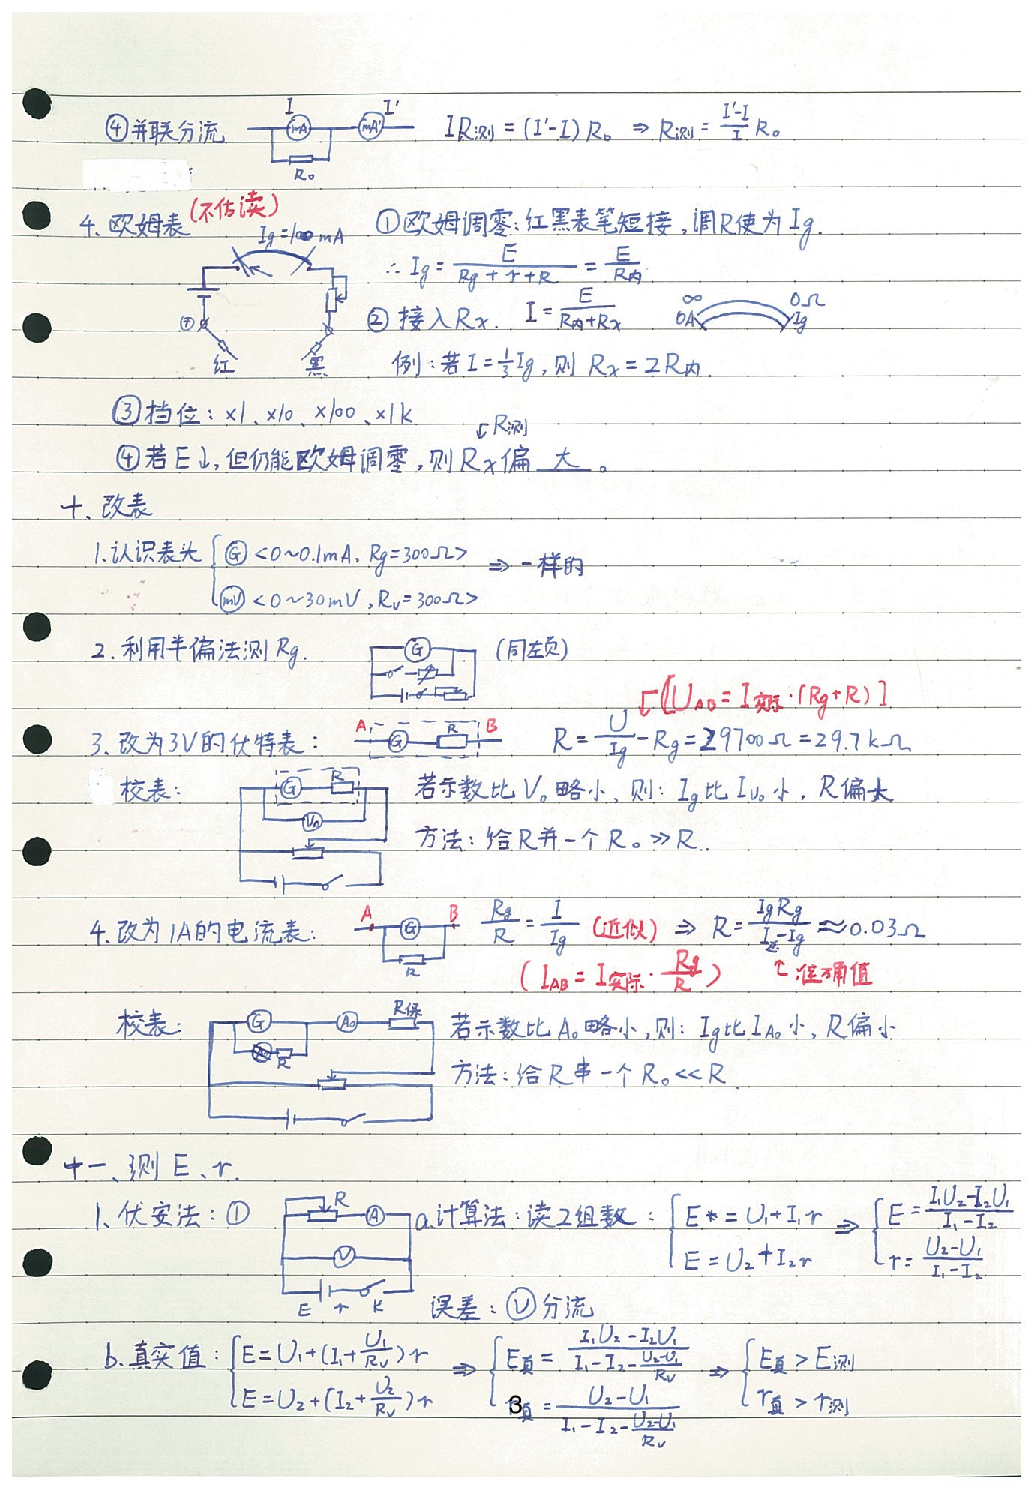 ④并联分流 I mA I' mA' R₀ IR测=(I'-I)R₀ ⇒ R测=(I'-I)/I R₀
4.欧姆表(不估读) Ig=100mA ①欧姆调零:红黑表笔短接,调R使为Ig.
∴ Ig=E/(Rg+r+R)=E/R内
②接入Rx. I=E/(R内+Rx) ∞ 0Ω 0A Ig
红 黑 例:若I=⅓Ig,则 Rx=2R内
③挡位:×1、×10、×100、×1k
R测
④若E↓,但仍能欧姆调零,则Rx偏 大 。
十、改表
1.认识表头 { G <0~0.1mA, Rg=300Ω> ⇒一样的
mV <0~30mV, Rv=300Ω>
2.利用半偏法测Rg. G (同左页)
[U_AB=I实际·(Rg+R)]
3.改为3V的伏特表: A G R B R=U/Ig-Rg=29700Ω=29.7kΩ
校表: G R V₀ 若示数比V₀略小、则:Ig比I_V₀小,R偏大
方法:给R并一个R₀≫R.
4.改为1A的电流表: A G B R Rg/R=I/Ig (近似) ⇒ R=IgRg/(I-Ig)≈0.03Ω
(I_AB=I实际·Rg/R) ↑准确值
校表: G A₀ R保 R 若示数比A₀略小,则:Ig比I_A₀小、R偏小
方法:给R串一个R₀<<R
十一、测E、r.
1、伏安法:① R A V E r K a.计算法:读2组数: { E=U₁+I₁r ⇒ { E=(I₁U₂-I₂U₁)/(I₁-I₂)
E=U₂+I₂r r=(U₂-U₁)/(I₁-I₂)
误差:Ⓥ分流
b.真实值: { E=U₁+(I₁+U₁/Rv)r ⇒ { E真=(I₁U₂-I₂U₁)/(I₁-I₂-(U₂-U₁)/Rv) ⇒ { E真>E测
E=U₂+(I₂+U₂/Rv)r r真=(U₂-U₁)/(I₁-I₂-(U₂-U₁)/Rv) r真>r测
3